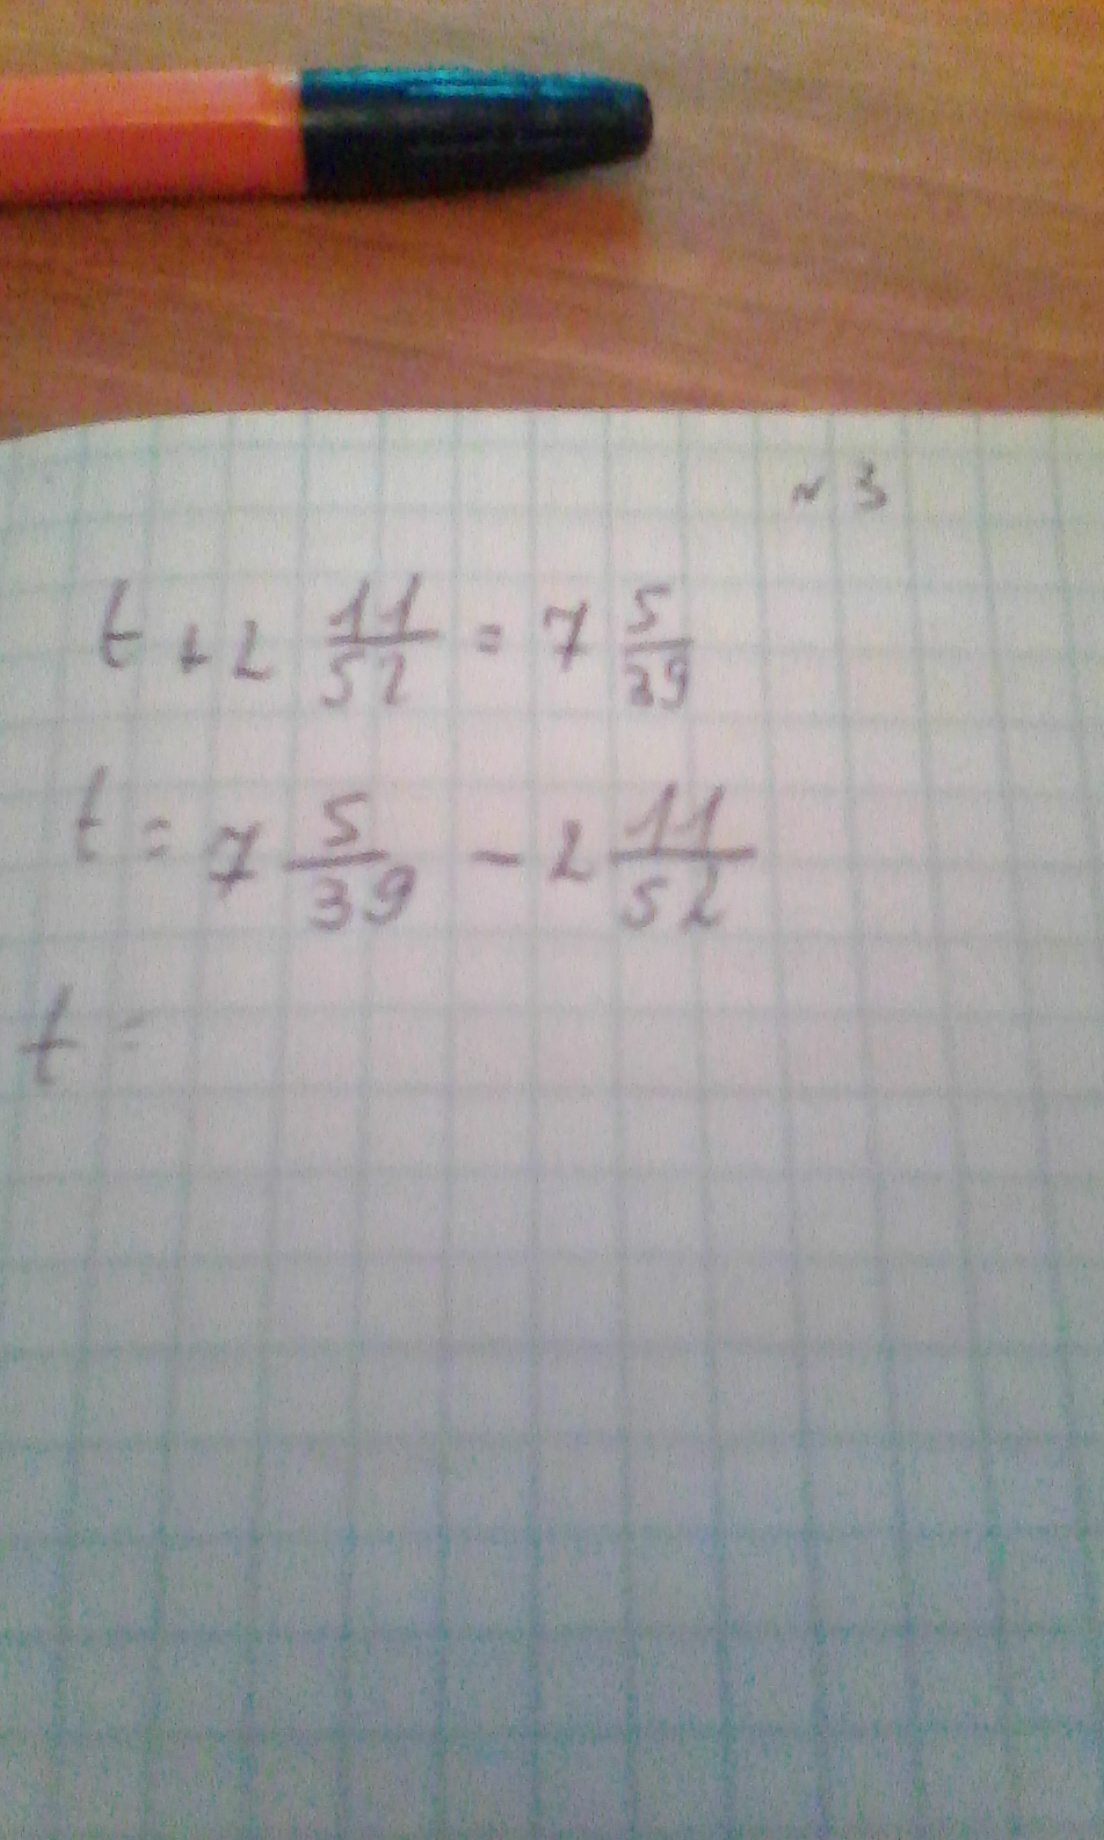 № 3
t + 2 11/52 = 7 5/39
t = 7 5/39 - 2 11/52
t =